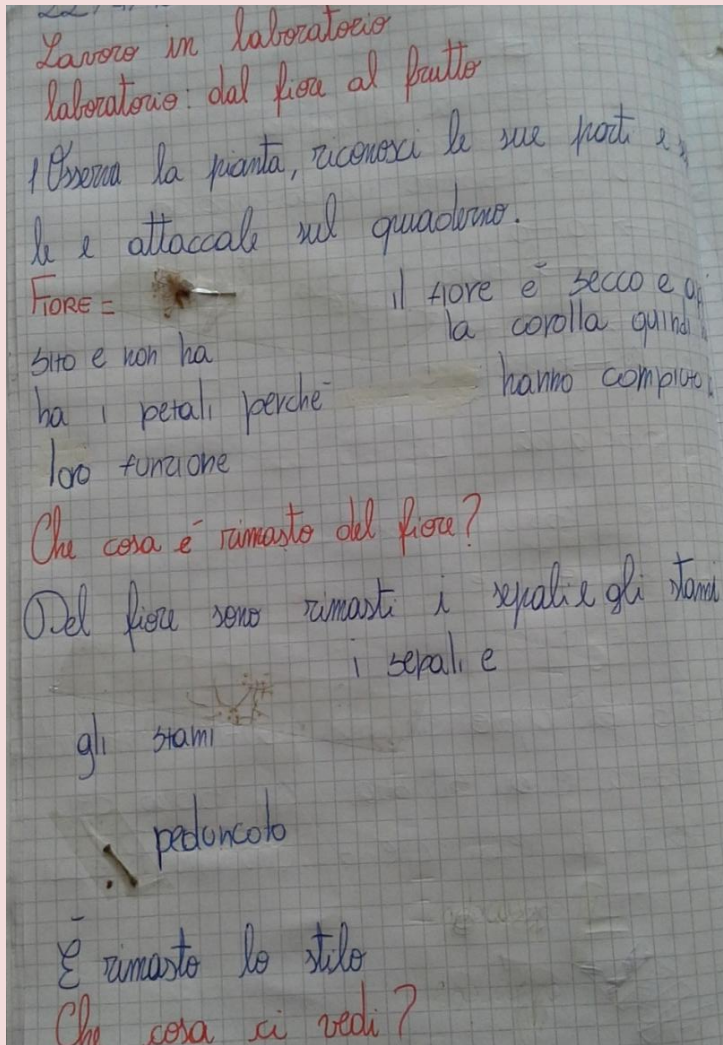 Lavoro in laboratorio
laboratorio: dal fiore al frutto
1 Osserva la pianta, riconosci le sue parti e
le e attaccale sul quaderno.
FIORE = il fiore è secco e
sito e non ha la corolla quindi
ha i petali perchè hanno compiuto
loro funzione
Che cosa è rimasto del fiore?
Del fiore sono rimasti i sepali e gli stami
i sepali e
gli stami
peduncolo
È rimasto lo stilo
Che cosa ci vedi?